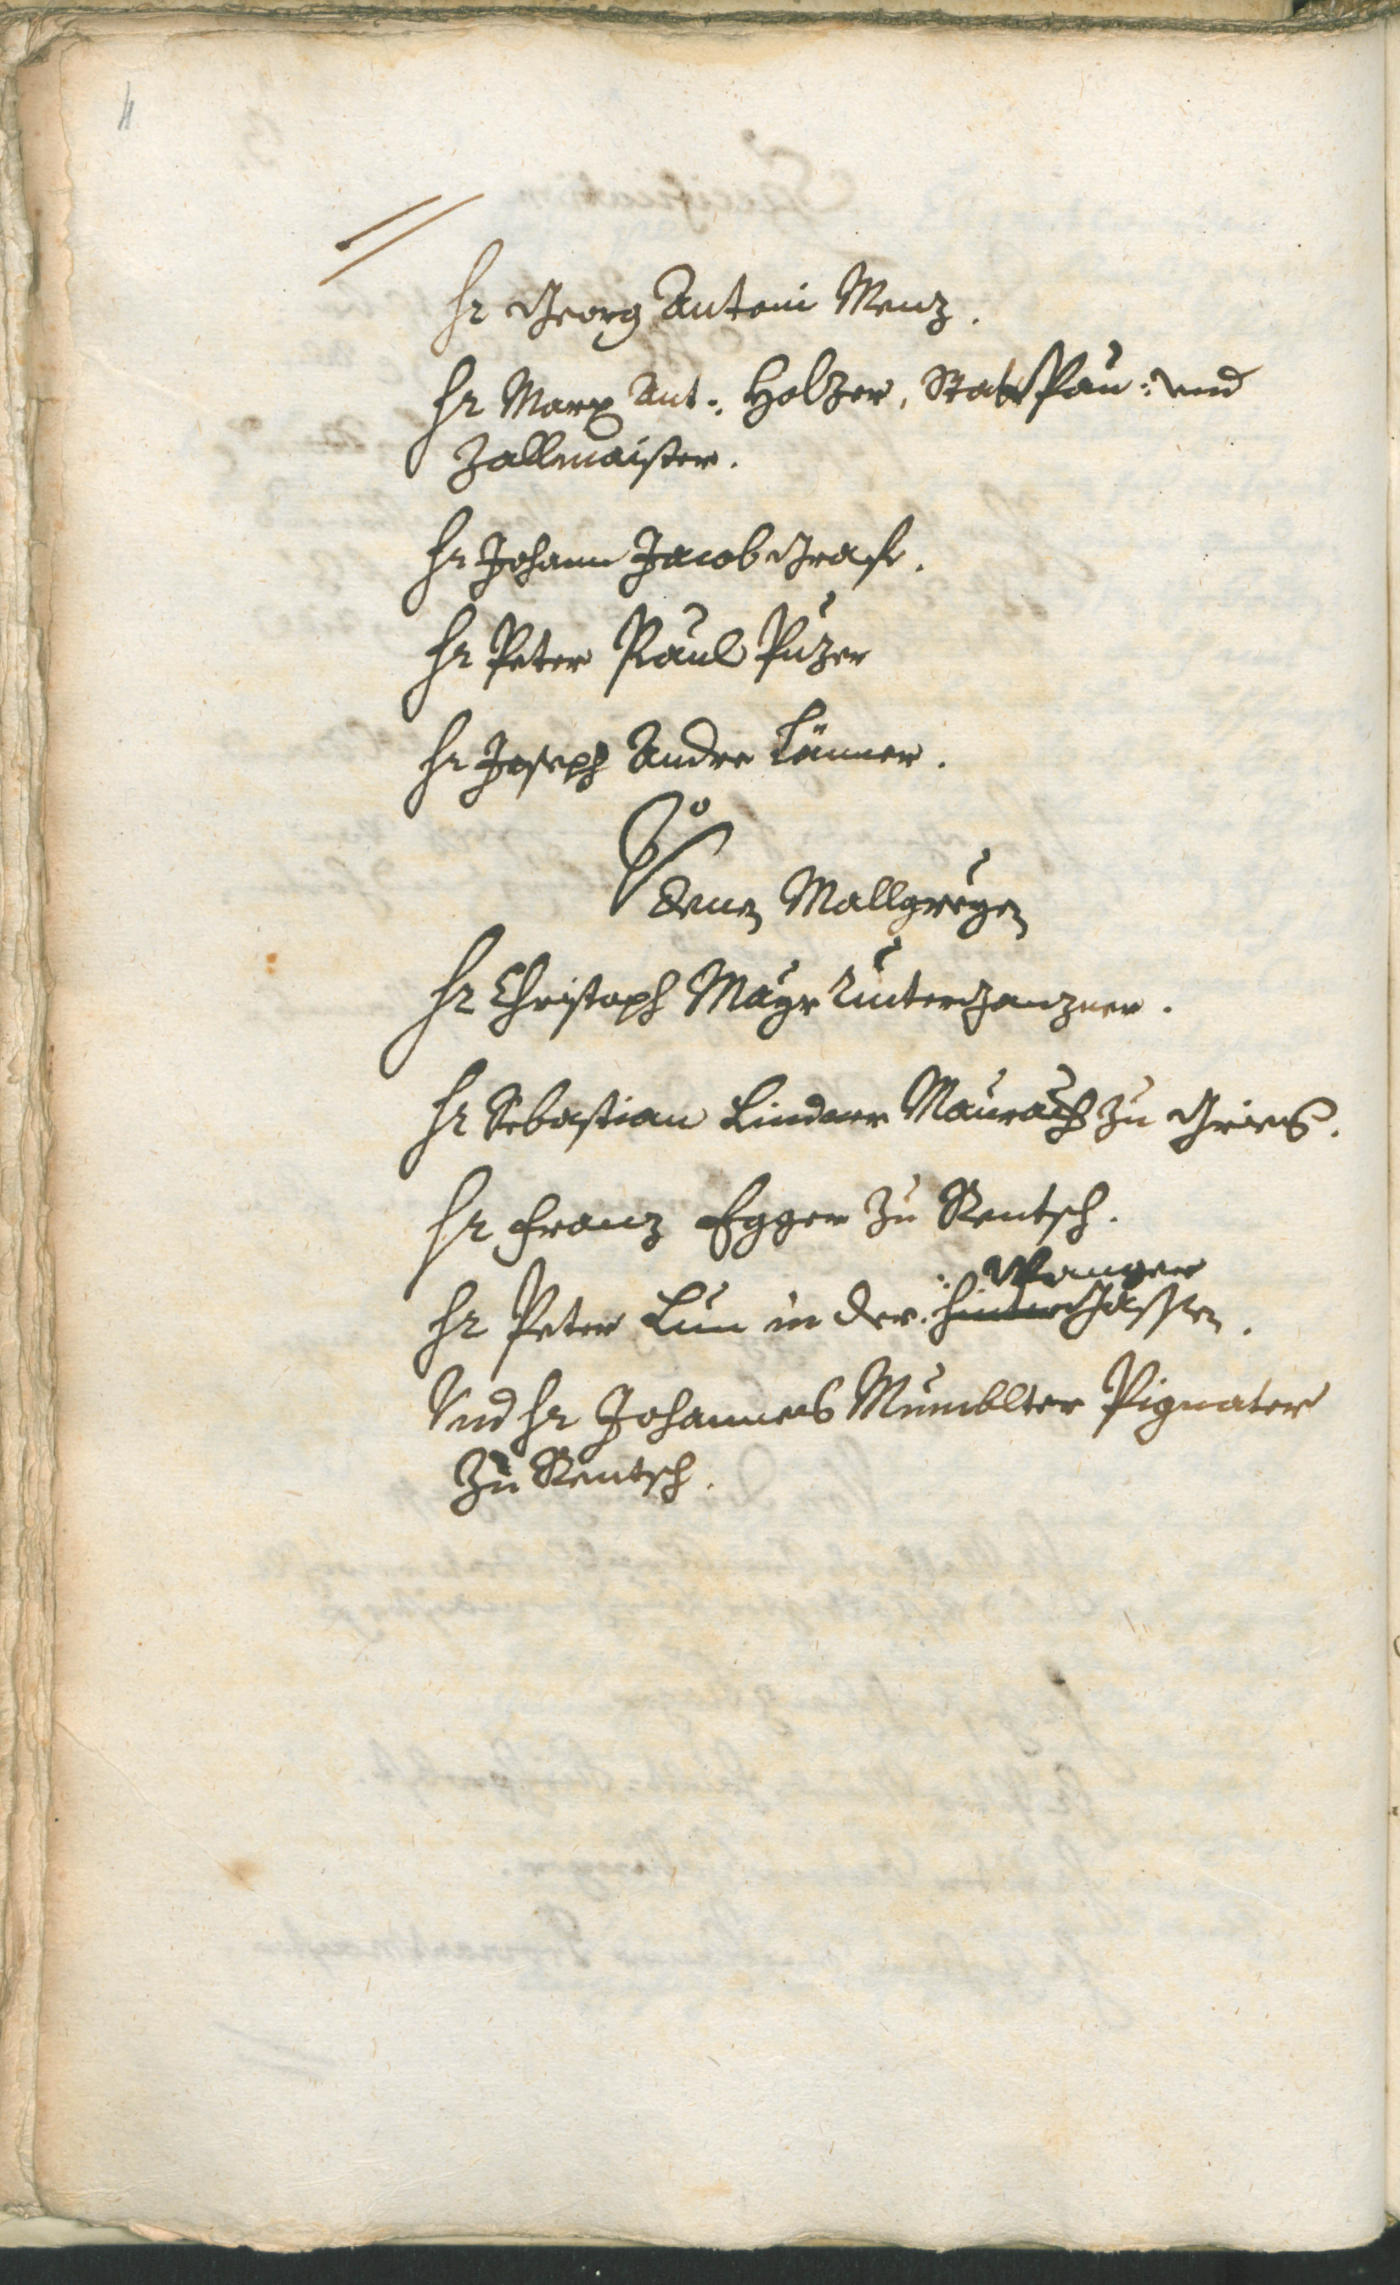 4
Hr Georg Antoni Menz.
Hr Marx Ant: Holzer, Statt Pau: und
Zallmaister.
Hr Johann Jacob Graff.
Hr Peter Paul Puzer
Hr Joseph Andre Länner.
Zu
denen Mallgreyen
Hr Christoph Mayr Unterganzner.
Hr Sebastian Lindner Maurach zu Gries.
Hr Franz Egger zu Rentsch.
Wanger
Hr Peter Lun in der: Hinter Gassen.
Und Hr Johannes Mumblter Pignater
zu Rentsch.